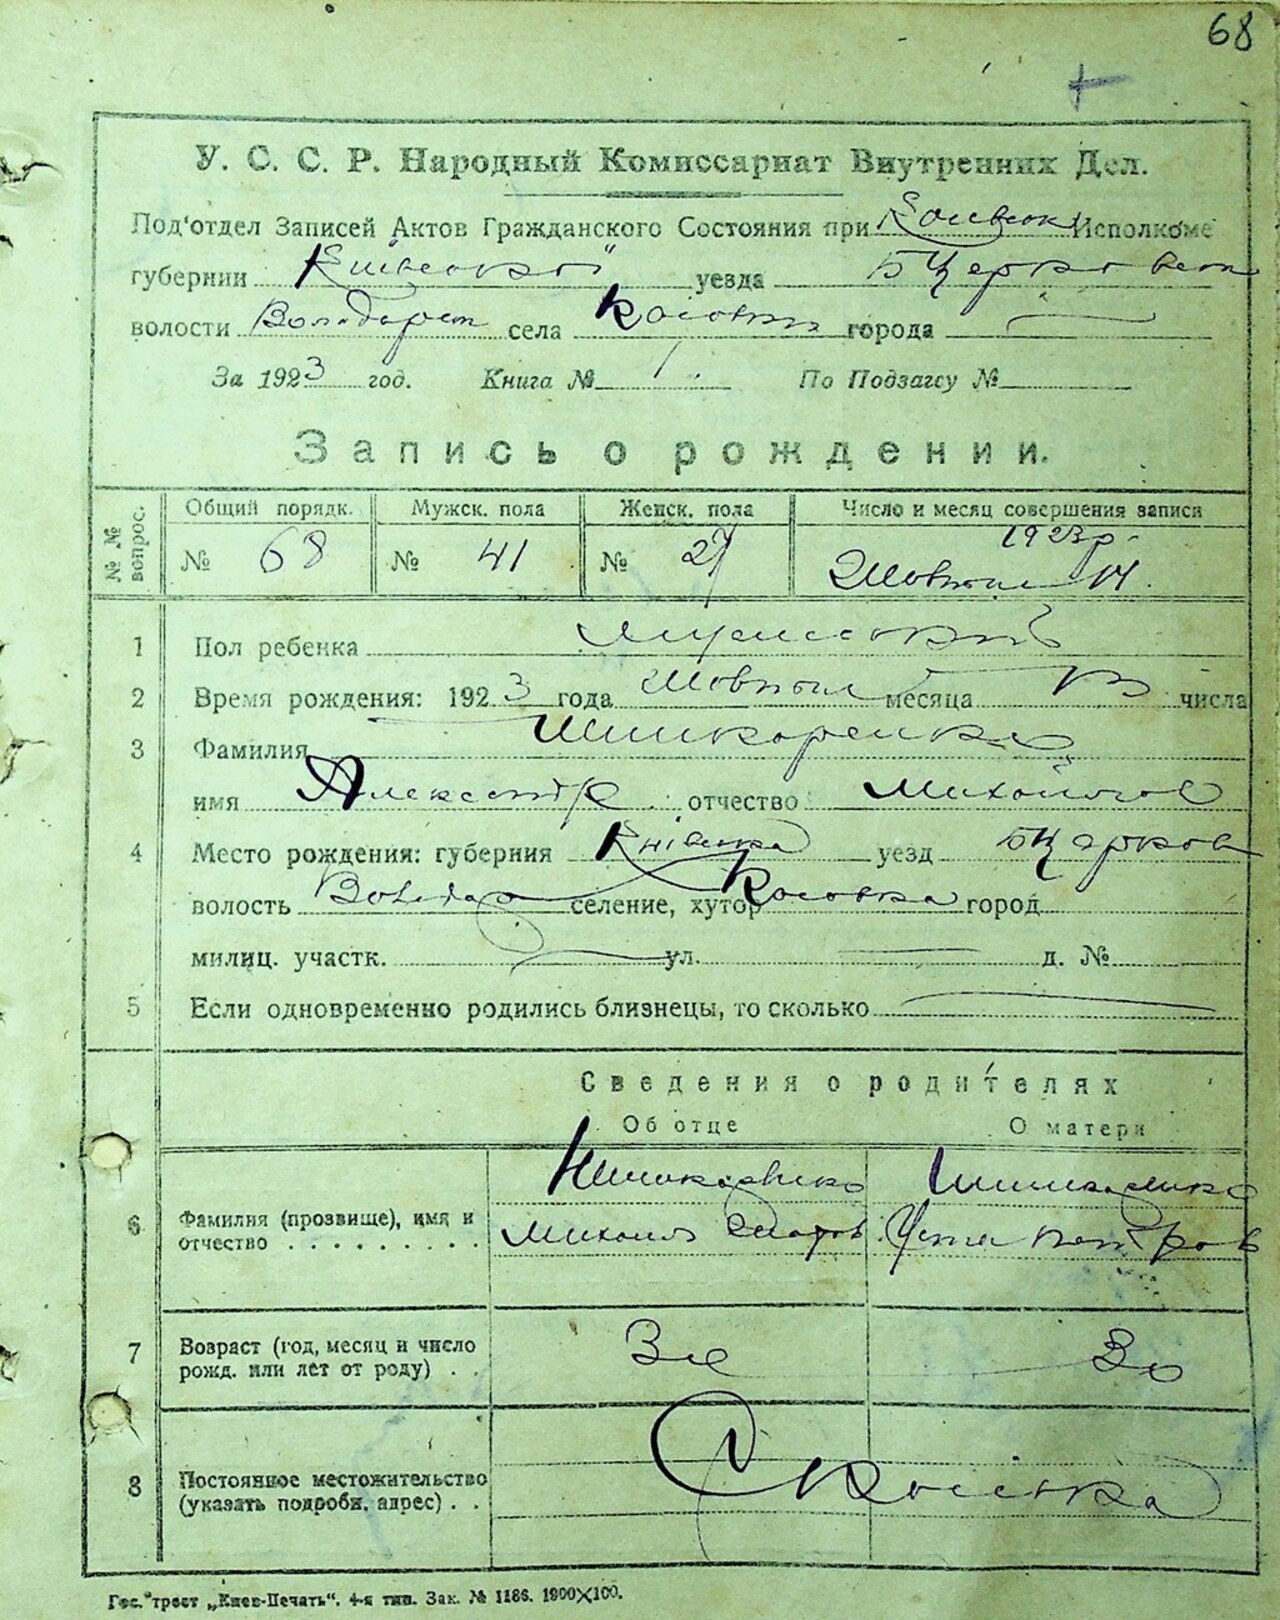 68
У. С. С. Р. Народный Комиссариат Внутренних Дел.
Под'отдел Записей Актов Гражданского Состояния при Исполкоме
губернии Київської уезда БЦерковськ
волости Володарськ села Косовки города —
За 1923 год. Книга № 1. По Подзагсу №
Запись о рождении.
№№ вопрос. Общий порядк. Мужск. пола Женск. пола Число и месяц совершения записи
№ 68 № 41 № 27 1923р. Жовтня 14.
1 Пол ребенка
2 Время рождения: 1923 года Жовтня месяца 13 числа
3 Фамилия Шинкаренко
имя Александр отчество Михайлов
4 Место рождения: губерния Київська уезд БЦерков
волость Володар селение, хутор Косовка город
милиц. участк. — ул. — д. №
5 Если одновременно родились близнецы, то сколько —
Сведения о родителях
Об отце О матери
Шинкаренко Шинкаренко
6 Фамилия (прозвище), имя и отчество . . . . . . . . . Михаил петров
7 Возраст (год, месяц и число рожд. или лет от роду) . . 30 30
8 Постоянное местожительство (указать подробн. адрес) . . С Косовка
Гос. трест „Киев-Печать“. 4-я тип. Зак. № 1186. 1900×100.